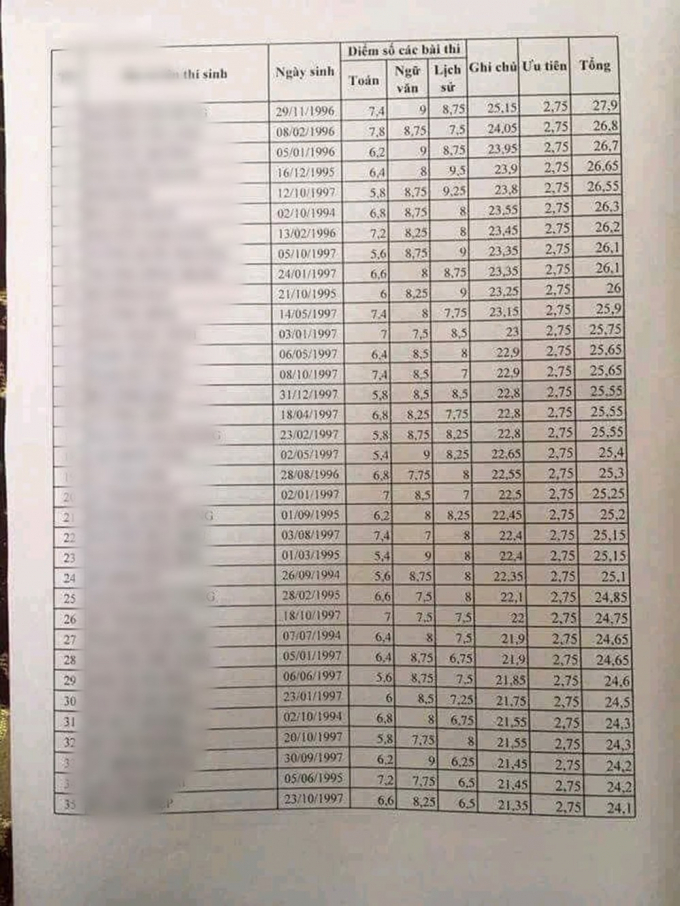 Điểm số các bài thi
thí sinh Ngày sinh Toán Ngữ văn Lịch sử Ghi chú Ưu tiên Tổng
29/11/1996 7,4 9 8,75 25,15 2,75 27,9
08/02/1996 7,8 8,75 7,5 24,05 2,75 26,8
05/01/1996 6,2 9 8,75 23,95 2,75 26,7
16/12/1995 6,4 8 9,5 23,9 2,75 26,65
12/10/1997 5,8 8,75 9,25 23,8 2,75 26,55
02/10/1994 6,8 8,75 8 23,55 2,75 26,3
13/02/1996 7,2 8,25 8 23,45 2,75 26,2
05/10/1997 5,6 8,75 9 23,35 2,75 26,1
24/01/1997 6,6 8 8,75 23,35 2,75 26,1
21/10/1995 6 8,25 9 23,25 2,75 26
14/05/1997 7,4 8 7,75 23,15 2,75 25,9
03/01/1997 7 7,5 8,5 23 2,75 25,75
06/05/1997 6,4 8,5 8 22,9 2,75 25,65
08/10/1997 7,4 8,5 7 22,9 2,75 25,65
31/12/1997 5,8 8,5 8,5 22,8 2,75 25,55
18/04/1997 6,8 8,25 7,75 22,8 2,75 25,55
23/02/1997 5,8 8,75 8,25 22,8 2,75 25,55
02/05/1997 5,4 9 8,25 22,65 2,75 25,4
28/08/1996 6,8 7,75 8 22,55 2,75 25,3
20 02/01/1997 7 8,5 7 22,5 2,75 25,25
21 G 01/09/1995 6,2 8 8,25 22,45 2,75 25,2
22 03/08/1997 7,4 7 8 22,4 2,75 25,15
23 01/03/1995 5,4 9 8 22,4 2,75 25,15
24 26/09/1994 5,6 8,75 8 22,35 2,75 25,1
25 G 28/02/1995 6,6 7,5 8 22,1 2,75 24,85
26 18/10/1997 7 7,5 7,5 22 2,75 24,75
27 07/07/1994 6,4 8 7,5 21,9 2,75 24,65
28 05/01/1997 6,4 8,75 6,75 21,9 2,75 24,65
29 06/06/1997 5,6 8,75 7,5 21,85 2,75 24,6
30 23/01/1997 6 8,5 7,25 21,75 2,75 24,5
31 02/10/1994 6,8 8 6,75 21,55 2,75 24,3
32 20/10/1997 5,8 7,75 8 21,55 2,75 24,3
30/09/1997 6,2 9 6,25 21,45 2,75 24,2
05/06/1995 7,2 7,75 6,5 21,45 2,75 24,2
35 P 23/10/1997 6,6 8,25 6,5 21,35 2,75 24,1